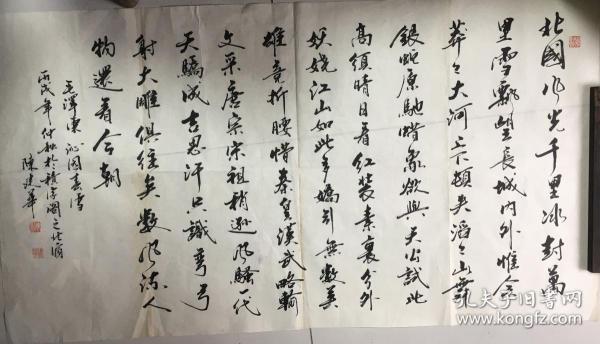 北國风光千里冰封萬
里雪飘望長城内外惟余
莽々大河上下頓失滔々山舞
銀蛇原馳蜡象欲與天公試比
高須晴日看红装素裹分外
妖娆江山如此多嬌引無數英
雄竞折腰惜秦皇漢武略輸
文采唐宗宋祖稍逊风騷一代
天驕成吉思汗只識弯弓
射大雕俱往矣數风流人
物還看今朝
毛澤東沁园春雪
丙戌年仲秋於
陳建華
孔夫子旧书网
www.kongfz.com